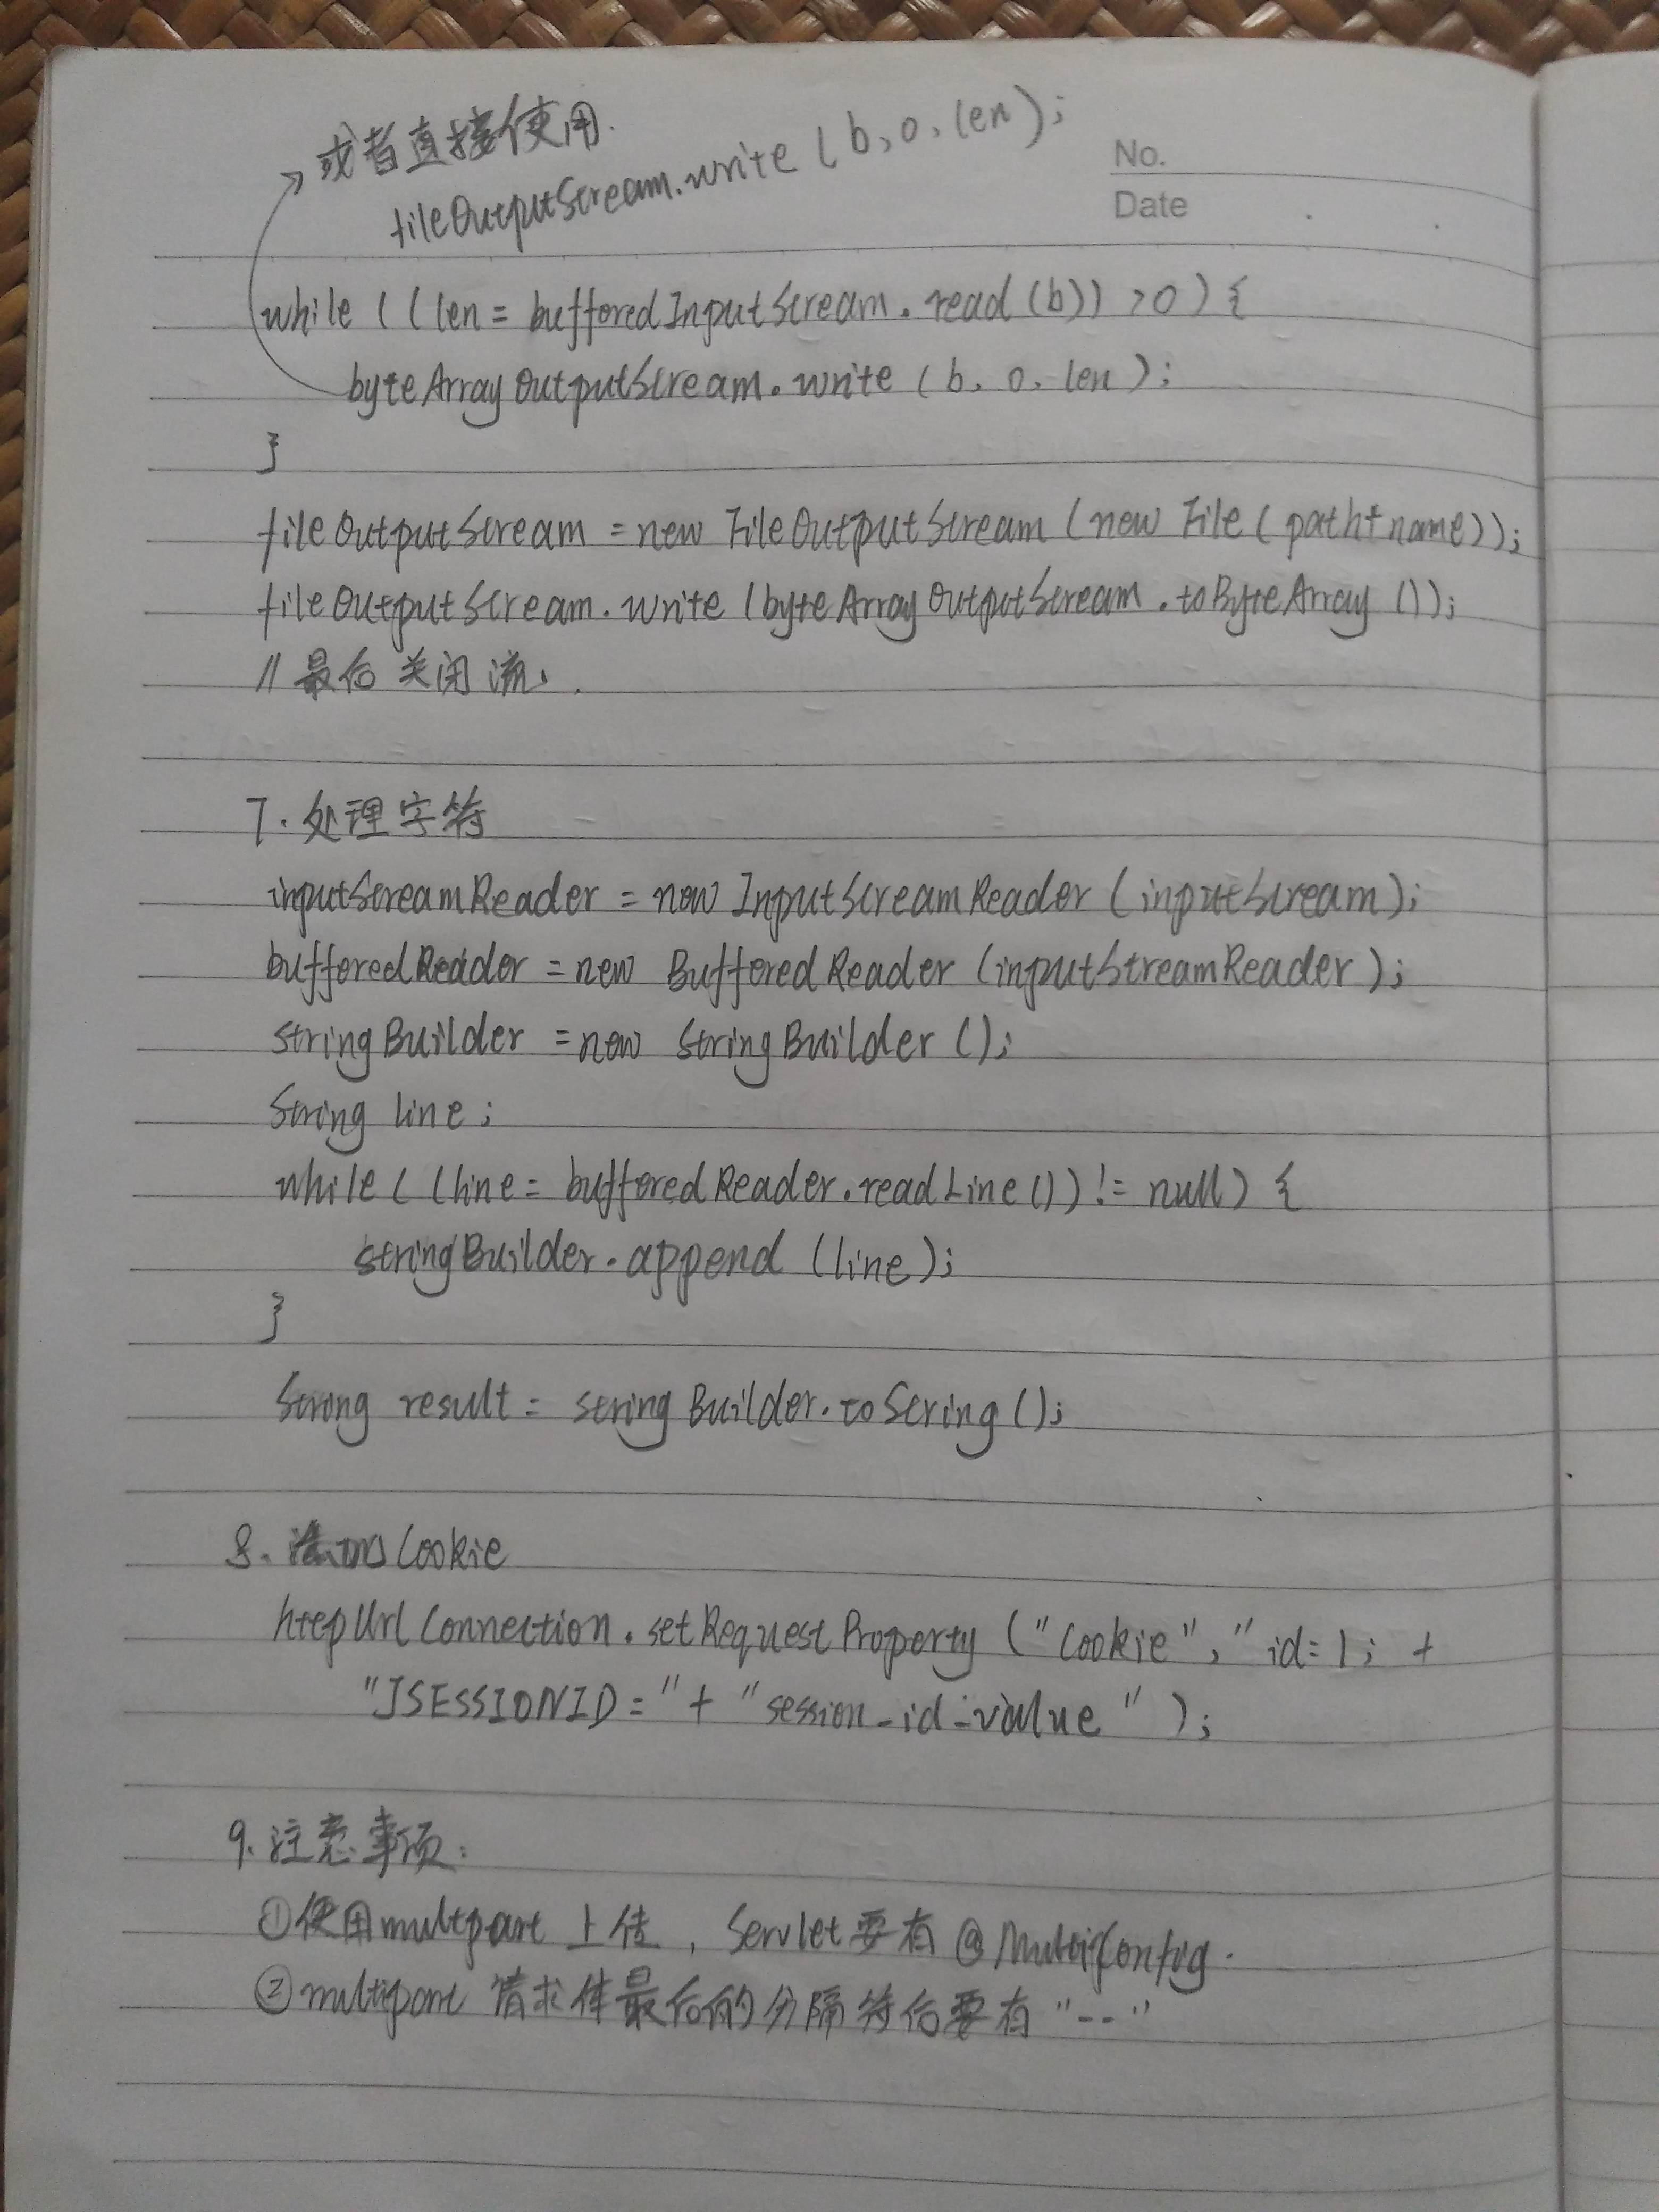 或者直接使用.
fileOutputStream.write(b,0,len);
No.
Date
while((len=bufferedInputStream.read(b))>0){
byteArrayOutputStream.write(b,0,len);
}
fileOutputStream=new FileOutputStream(new File(path+name));
fileOutputStream.write(byteArrayOutputStream.toByteArray());
//最后关闭流.
7.处理字符
inputStreamReader=new InputStreamReader(inputStream);
bufferedReader=new BufferedReader(inputStreamReader);
stringBuilder=new StringBuilder();
String line;
while((line=bufferedReader.readLine())!=null){
stringBuilder.append(line);
}
String result=stringBuilder.toString();
8.添加Cookie
httpUrlConnection.setRequestProperty("Cookie","id=1;+
"JSESSIONID="+"session-id-value");
9.注意事项:
①使用multipart上传,Servlet要有@MultiConfig.
②multipart请求体最后的分隔符后要有"--"